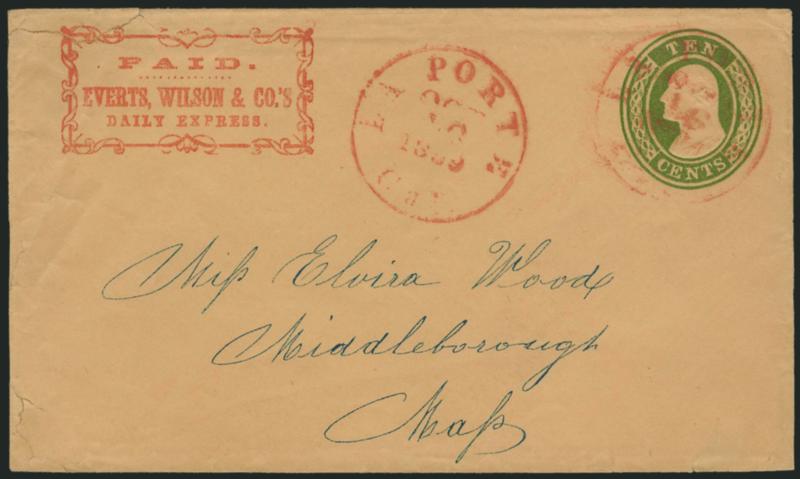 PAID.
EVERTS, WILSON & CO.'S
DAILY EXPRESS.
LA PORTE
OCT
1859
CAL
TEN
CENTS
Miſs Elvira Wood
Middleborough
Maſs